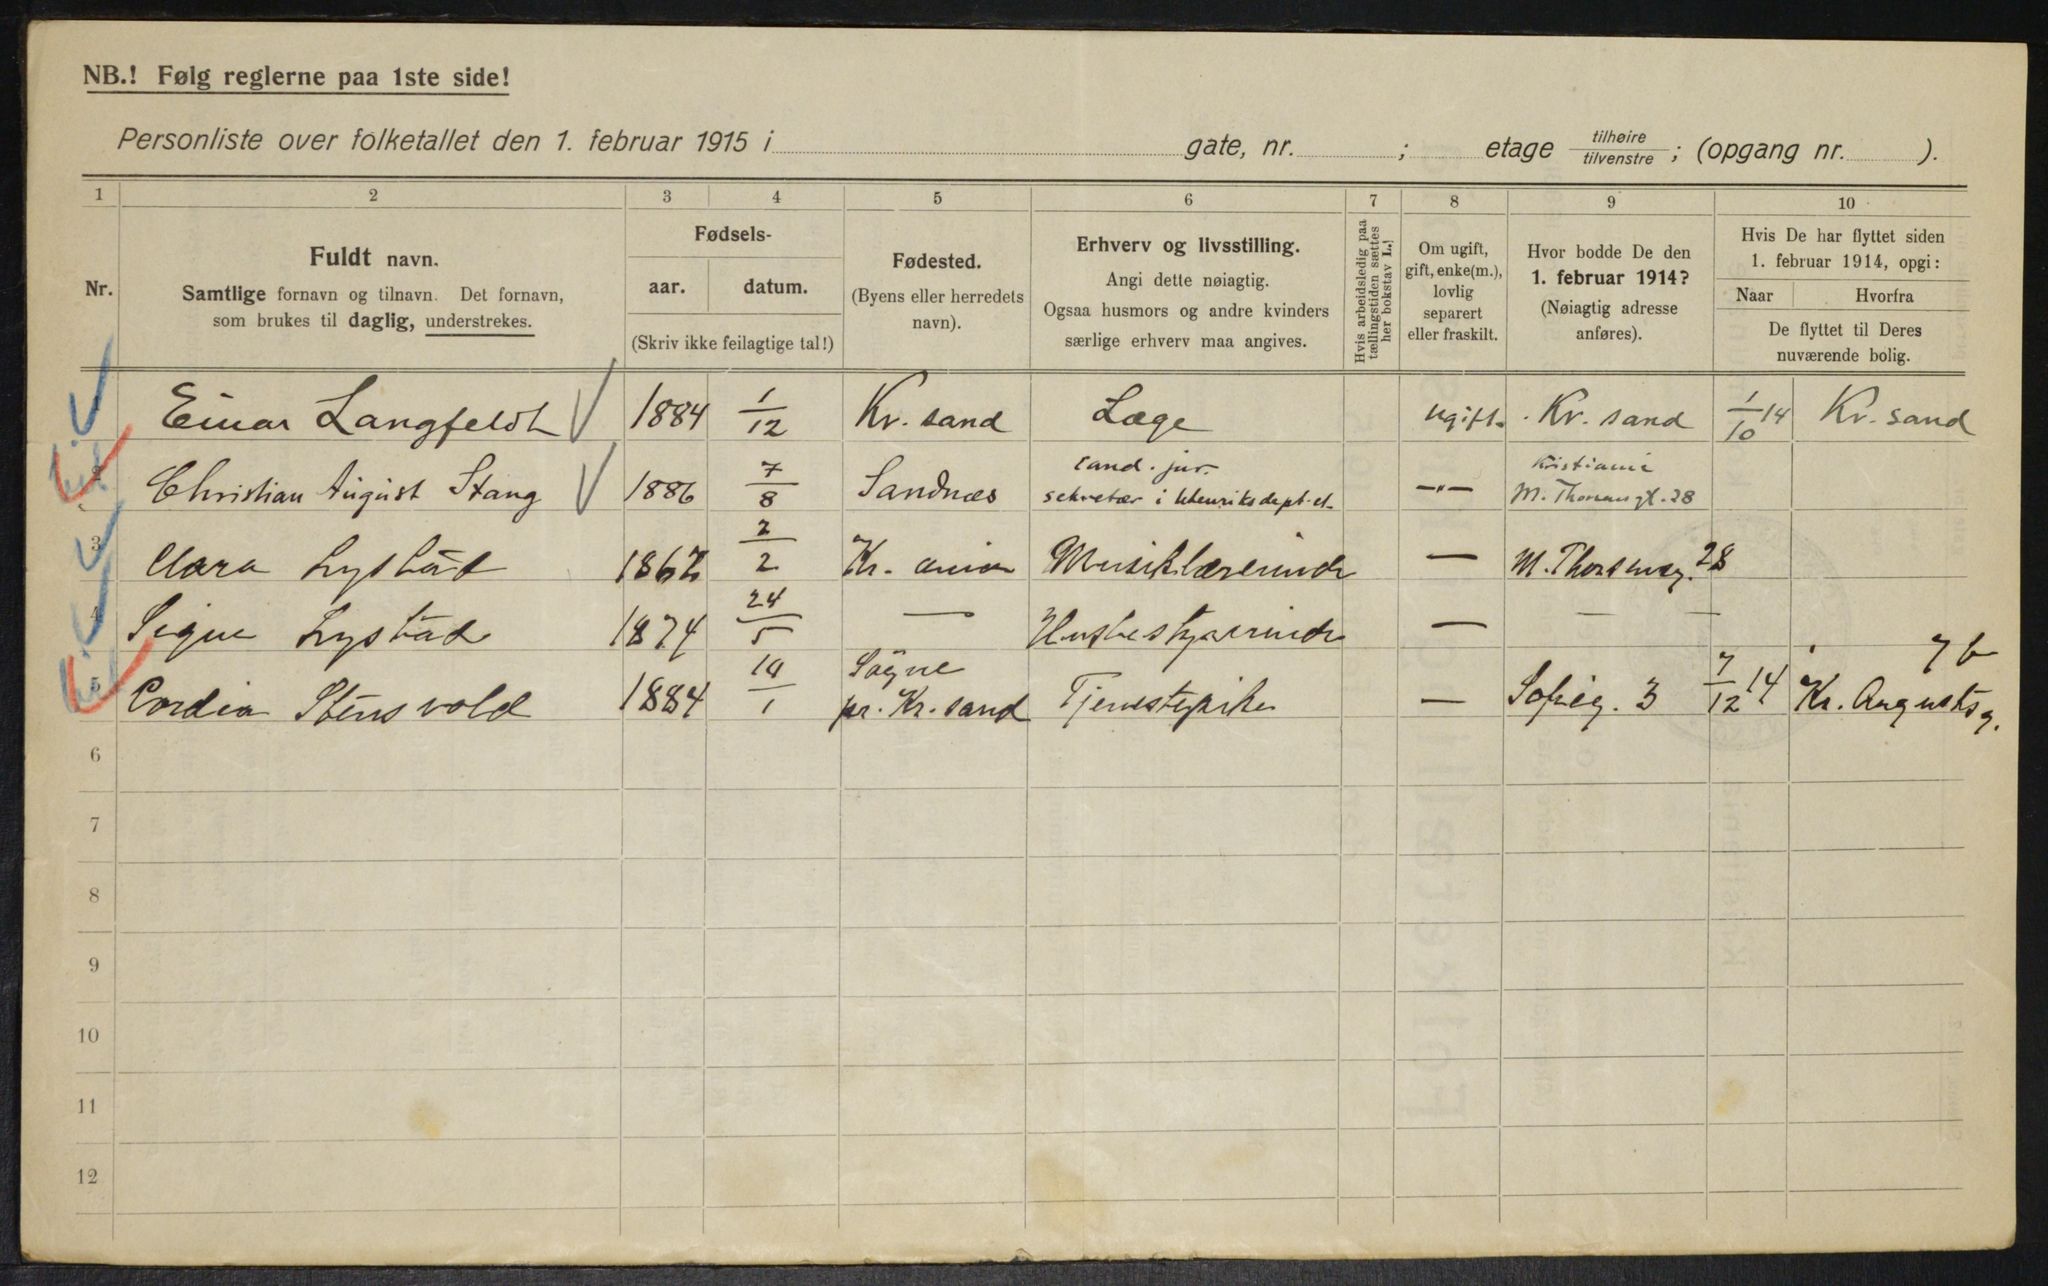 NB.! Følg reglerne paa 1ste side!
Personliste over folketallet den 1. februar 1915 i gate, nr. ; etage tilhøire tilvenstre ; (opgang nr. ).
1 2 3 4 5 6 7 8 9 10
Nr.
Fuldt navn.
Samtlige fornavn og tilnavn. Det fornavn,
som brukes til daglig, understrekes.
Fødsels-
aar. datum.
(Skriv ikke feilagtige tal!)
Fødested.
(Byens eller herredets
navn).
Erhverv og livsstilling.
Angi dette nøiagtig.
Ogsaa husmors og andre kvinders
særlige erhverv maa angives.
Hvis arbeidsledig paa
tællingstiden sættes
her bokstav L.)
Om ugift,
gift, enke(m.),
lovlig
separert
eller fraskilt.
Hvor bodde De den
1. februar 1914?
(Nøiagtig adresse
anføres).
Hvis De har flyttet siden
1. februar 1914, opgi:
Naar Hvorfra
De flyttet til Deres
nuværende bolig.
Einar Langfeldt 1884 1/12 Kr. sand Læge ugift. Kr. sand 1/10 14 Kr. sand
2 Christian August Stang 1886 7/8 Sandnæs cand. jur. sekretær i Utenriksdept.et. —"— Kristiania M. Thoresensgt. 28
3 Clara Lystad 1867 2/2 Kr. ania Musiklærerinde — M. Thoresensg. 28
4 Signe Lystad 1874 24/5 — Husbestyrerinde — — —
5 Cordia Stensvold 1884 10/1 Søgne pr. Kr. sand Tjenestepike — Sofieg. 3 7/12 14 Kr. Augustsg. 7 b
6
7
8
9
10
11
12